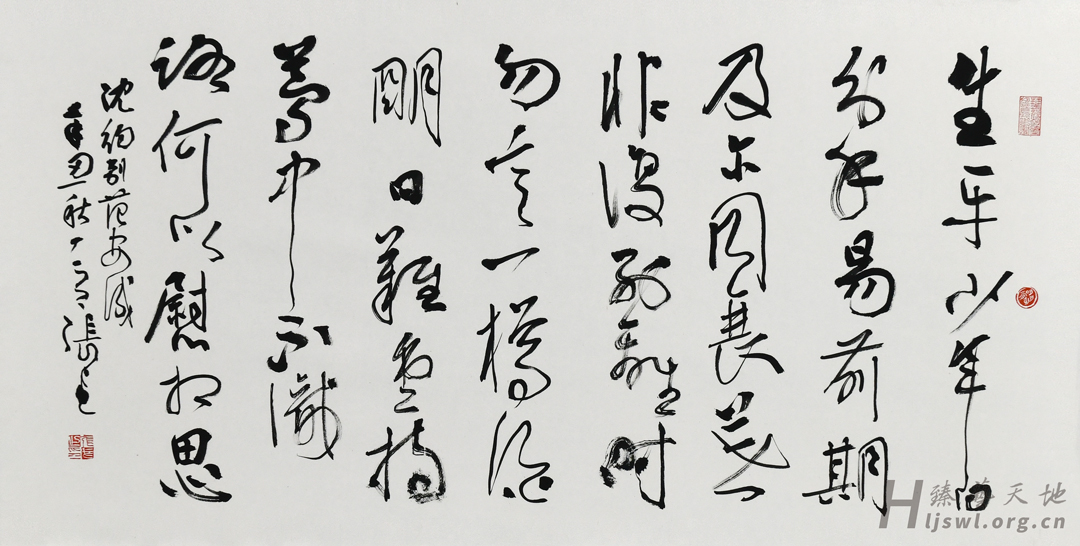 生平少年日
分手易前期
及尔同衰暮
非復别離时
勿言一樽酒
明日難重持
夢中不識
路何以慰相思
沈約别范安成
辛丑秋 張
天地
Hljswl.org.cn